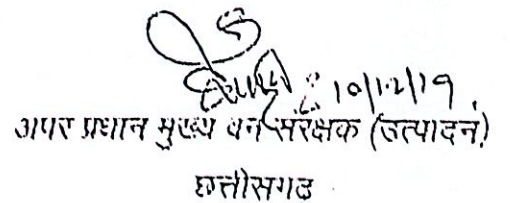 10/12/19
अपर प्रधान मुख्य वन संरक्षक (उत्पादन)
छत्तीसगढ